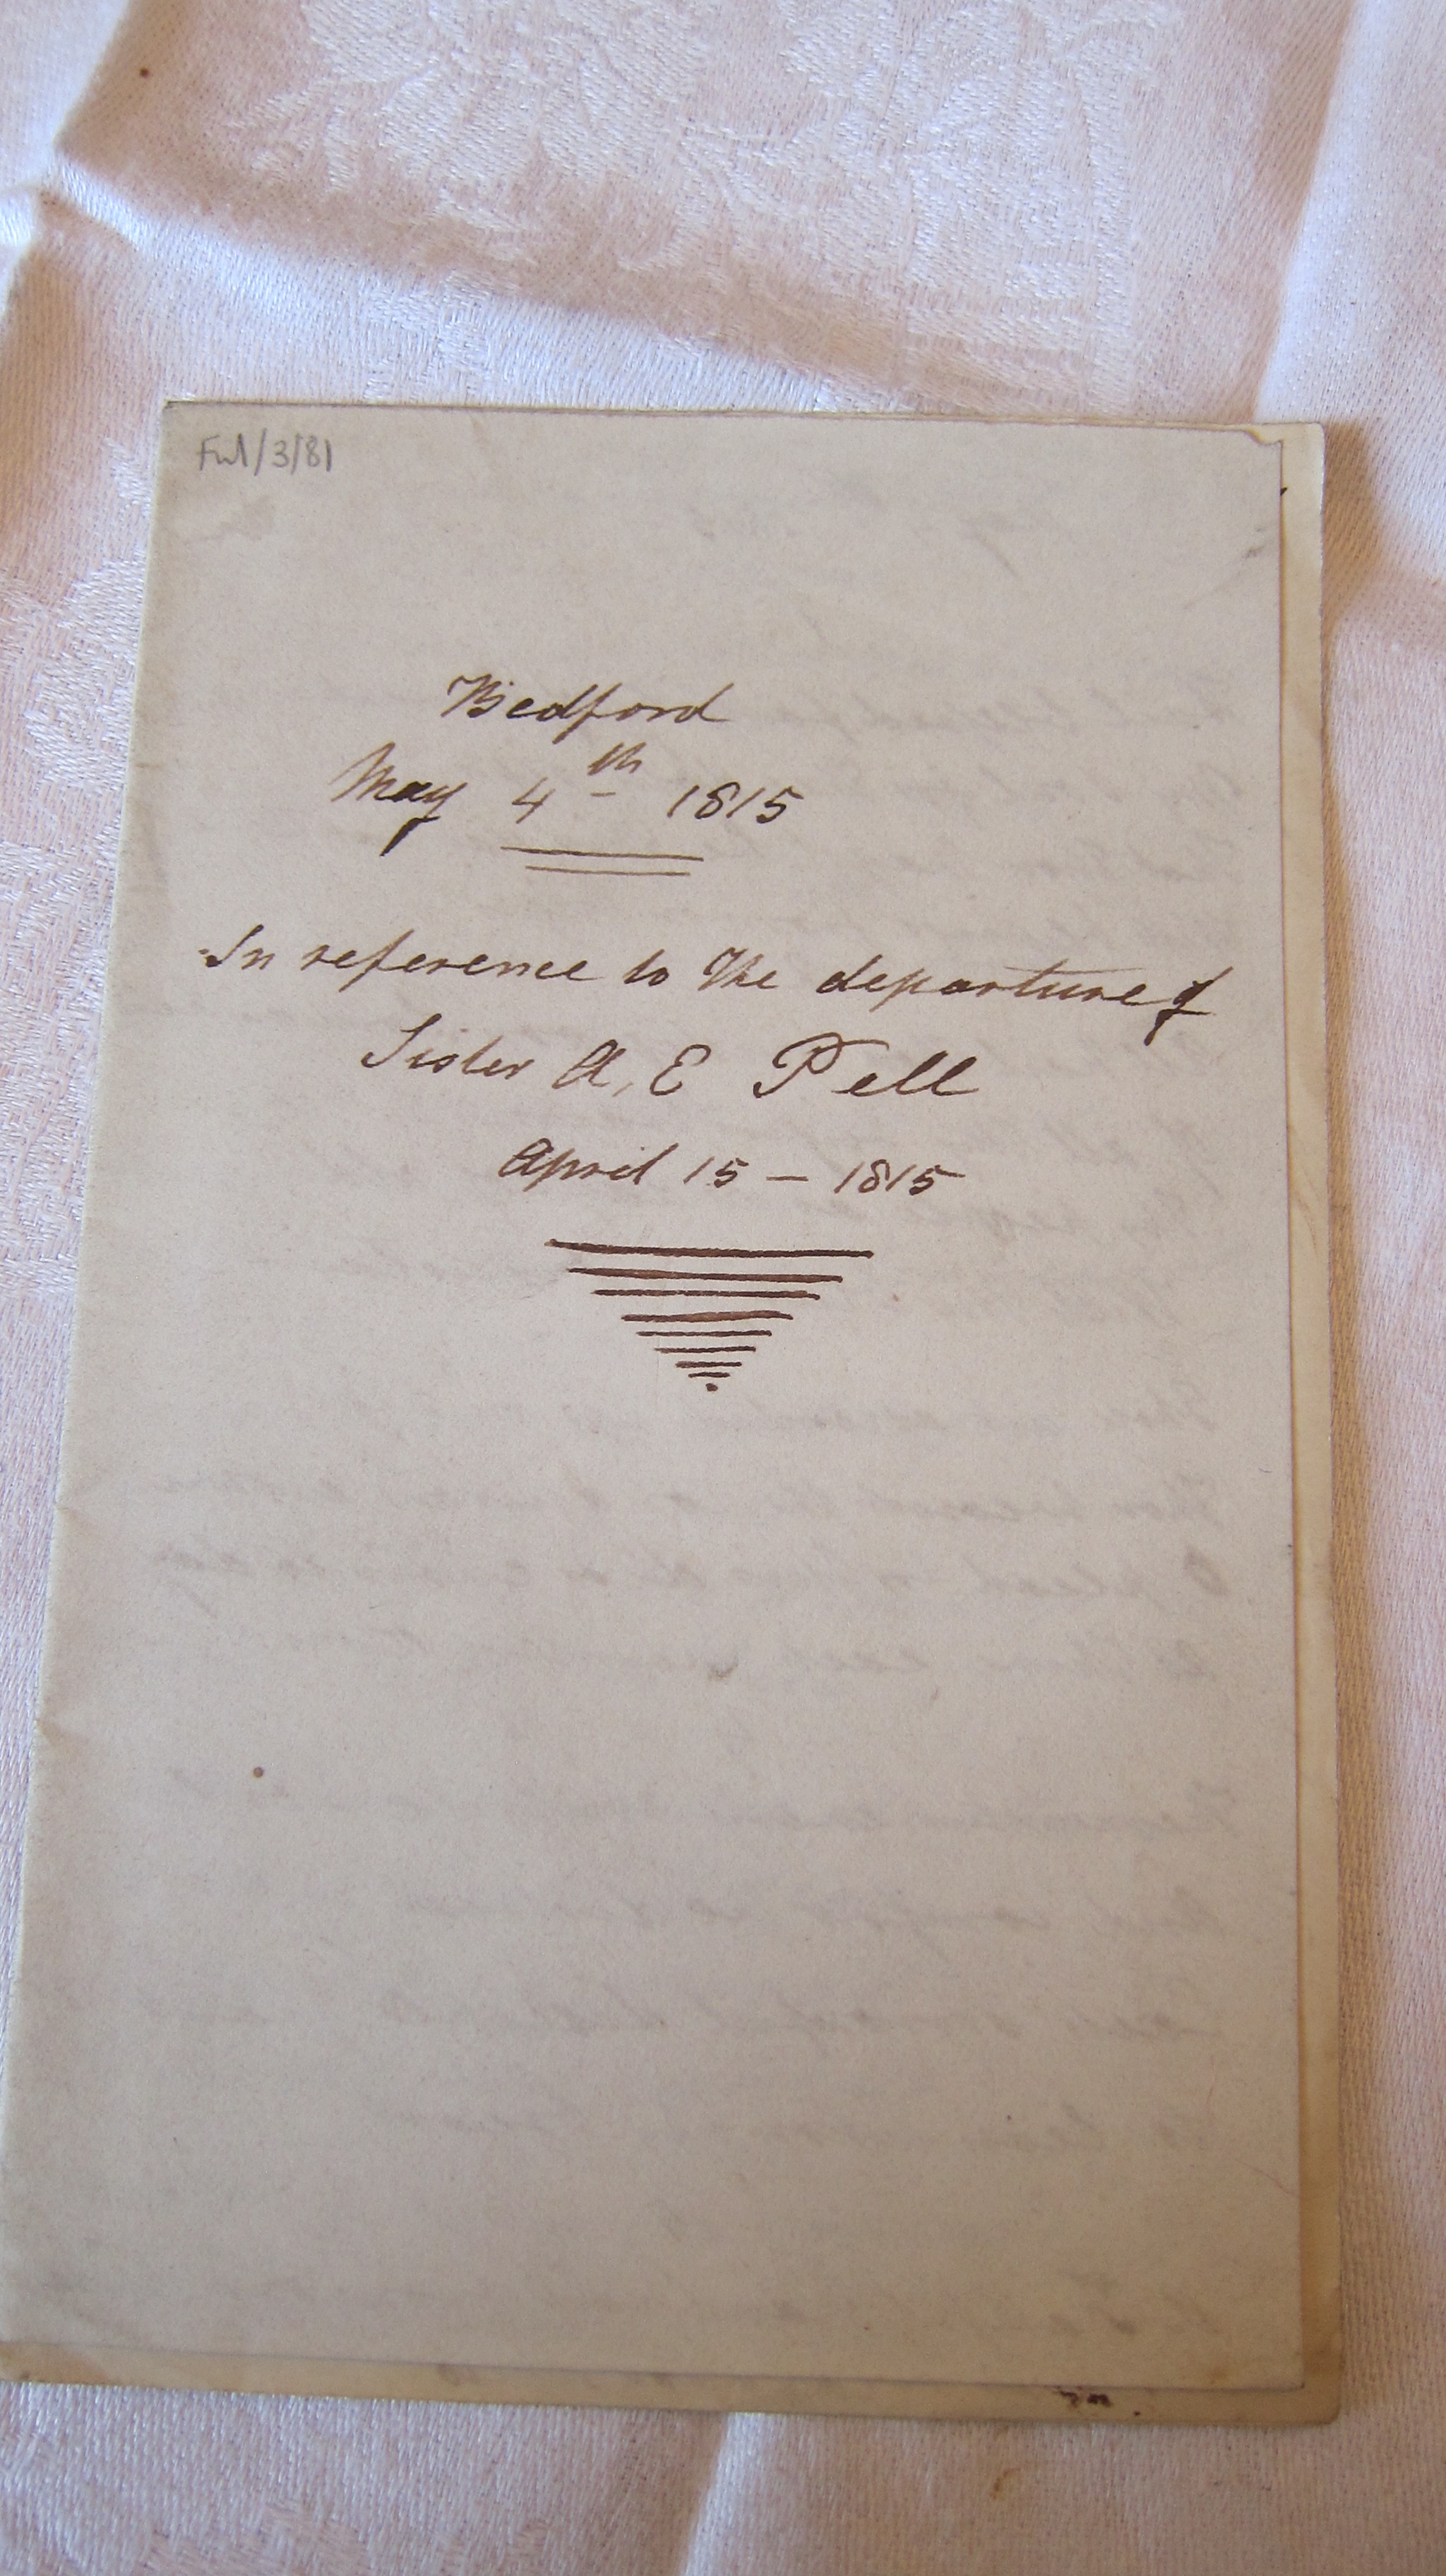 Ful/3/81
Bedford
May 4th 1815
In reference to the departure of
Sister A, E Pell
April 15 - 1815